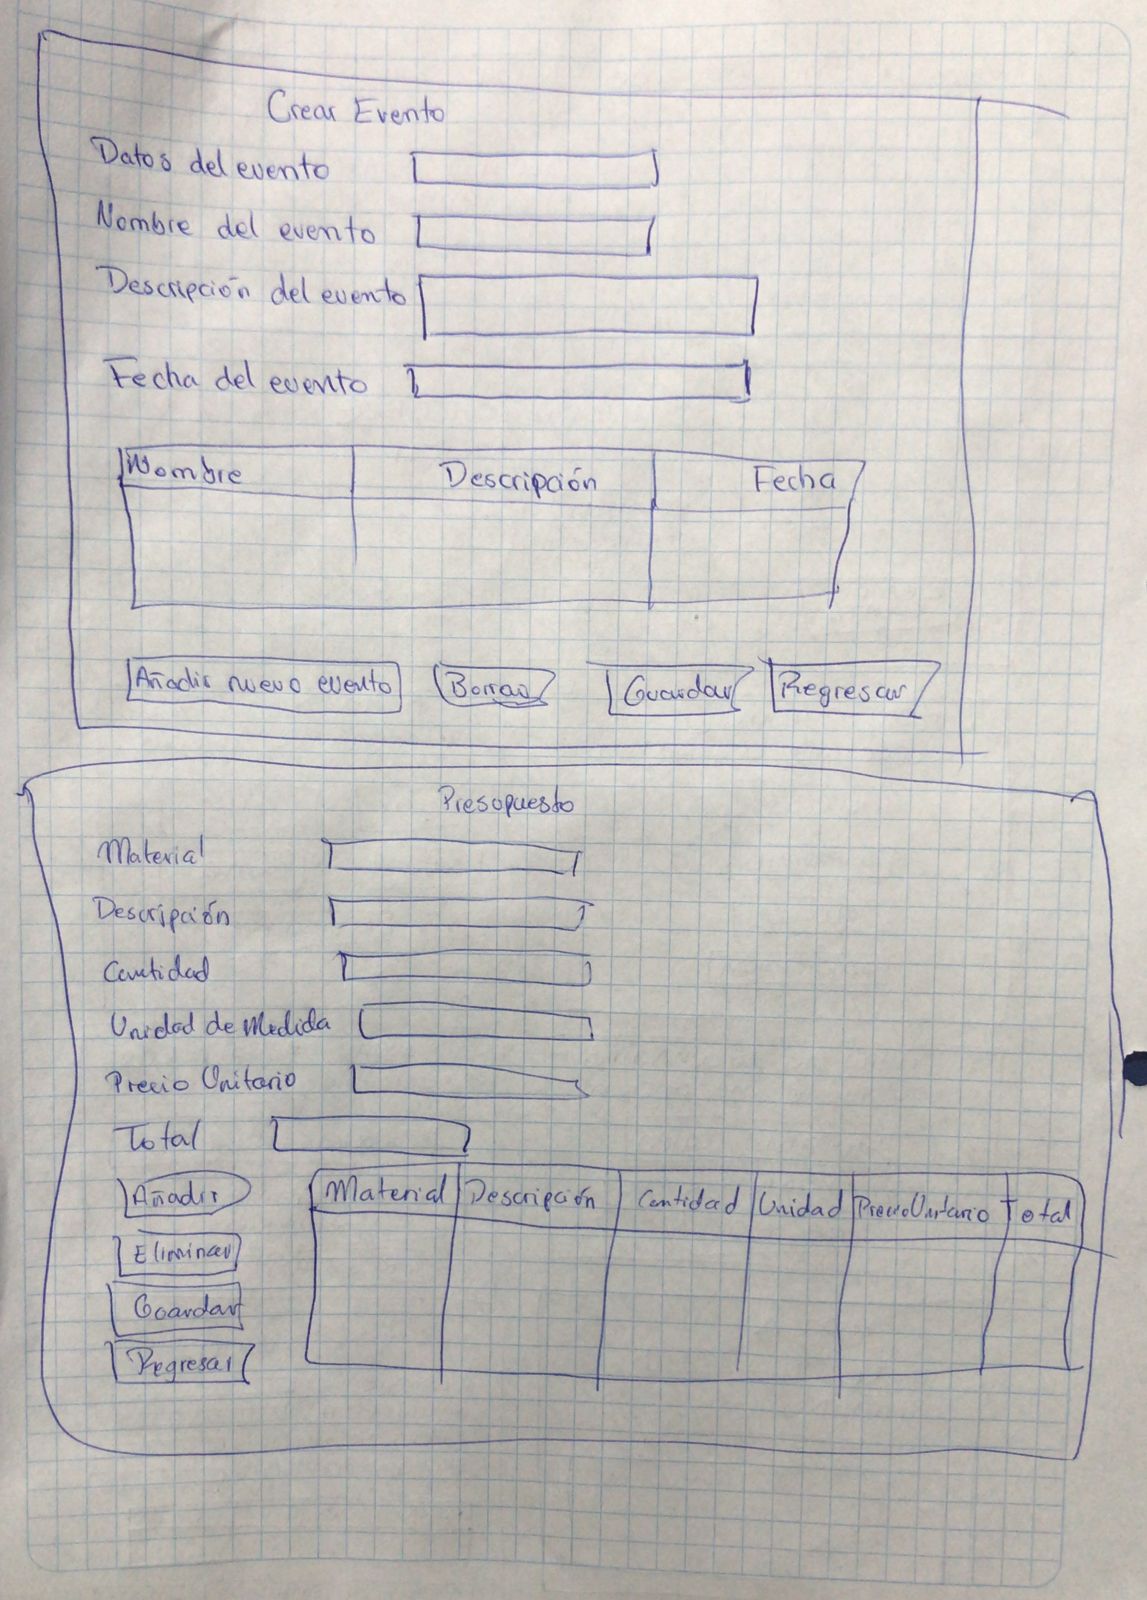 Crear Evento
Datos del evento
Nombre del evento
Descripción del evento
Fecha del evento
Nombre Descripción Fecha
Añadir nuevo evento Borrar Guardar Regresar
Presupuesto
Material
Descripción
Cantidad
Unidad de Medida
Precio Unitario
Total
Añadir Material Descripción Cantidad Unidad Precio Unitario Total
Eliminar
Guardar
Regresar